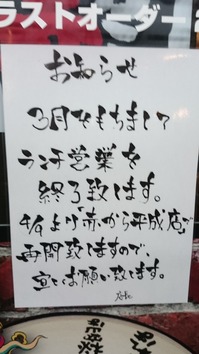 ラストオーダー
おしらせ
3月をもちまして
ランチ営業を
終了致します。
4/4より「赤から平成店」で
再開致しますので、
宜しくお願い致します。